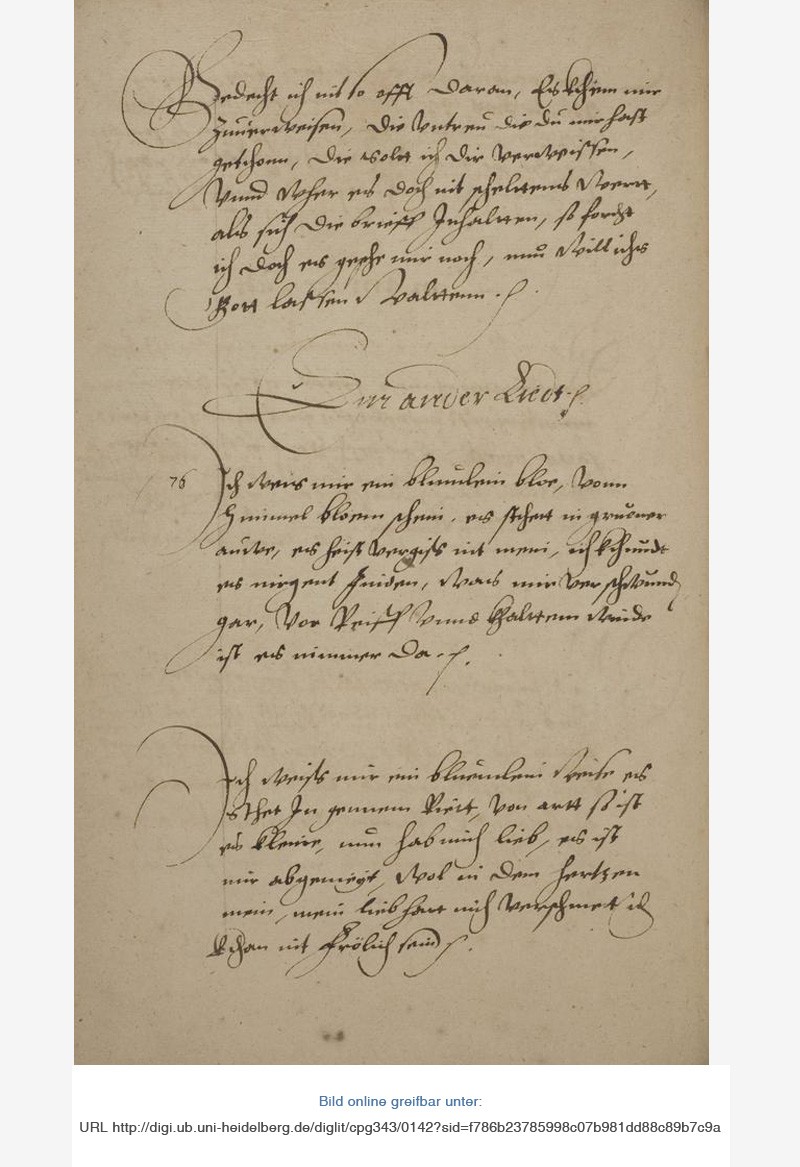 Gedecht ich nit so offt daran, Es khem mir
Zuuerweisen, die vntreu die du mir hast
gethonn, die wolt ich dir verweissen,
vnnd wher es doch nit scheltens wertt,
als sich die brieff Inhaltten, so forcht
ich doch es geehe mir noch, nun will ichs
Gott lassen waltenn.
Ein ander Liedt.
76 Ich weis mir ein blumlein bloe, vonn
himmel bloem schein, es stehett in gruoner
auwe, es heist vergiss nit mein, ich khundt
es nirgent finden, was mir verschwund
gar, Vor Reiff vnnd khaltem winde
ist es nimmer da.
Ich weiss mir ein bluemlein weise es
sthet In gennem Riett, von artt so ist
es kleine, nun hab mich lieb, es ist
mir abgemeyt, wol in dem hertzen
mein, mein lieb hatt mich verschmet ich
khan nit frölich sein.
Bild online greifbar unter:
URL http://digi.ub.uni-heidelberg.de/diglit/cpg343/0142?sid=f786b23785998c07b981dd88c89b7c9a